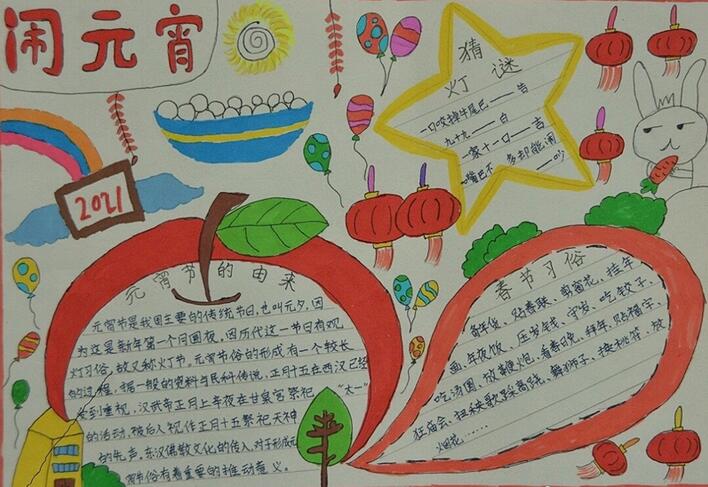 闹元宵
2021
猜
灯谜
一口咬掉牛尾巴——告
九十九——白
一家十一口——吉
嘴巴不多却能闹——吵
元宵节的由来
元宵节是我国主要的传统节日,也叫元夕,因
为这是新年第一个月圆夜。因历代这一节日有观
灯习俗,故又称灯节。元宵节俗的形成有一个较长
的过程,据一般的资料与民俗传说,正月十五在西汉已经
受到重视,汉武帝正月上午夜在甘泉宫祭祀“太一”
的活动,被后人视作正月十五祭祀天神
的先声。东汉佛教文化的传入,对于形成元
宵节俗有着重要的推动意义。
春节习俗
备年货、贴春联、剪窗花、挂年
画、年夜饭、压岁钱、守岁、吃饺子、
吃汤圆、放鞭炮、看春晚、拜年、贴福字、
逛庙会、扭秧歌、踩高跷、舞狮子、挂桃符、放
烟花……